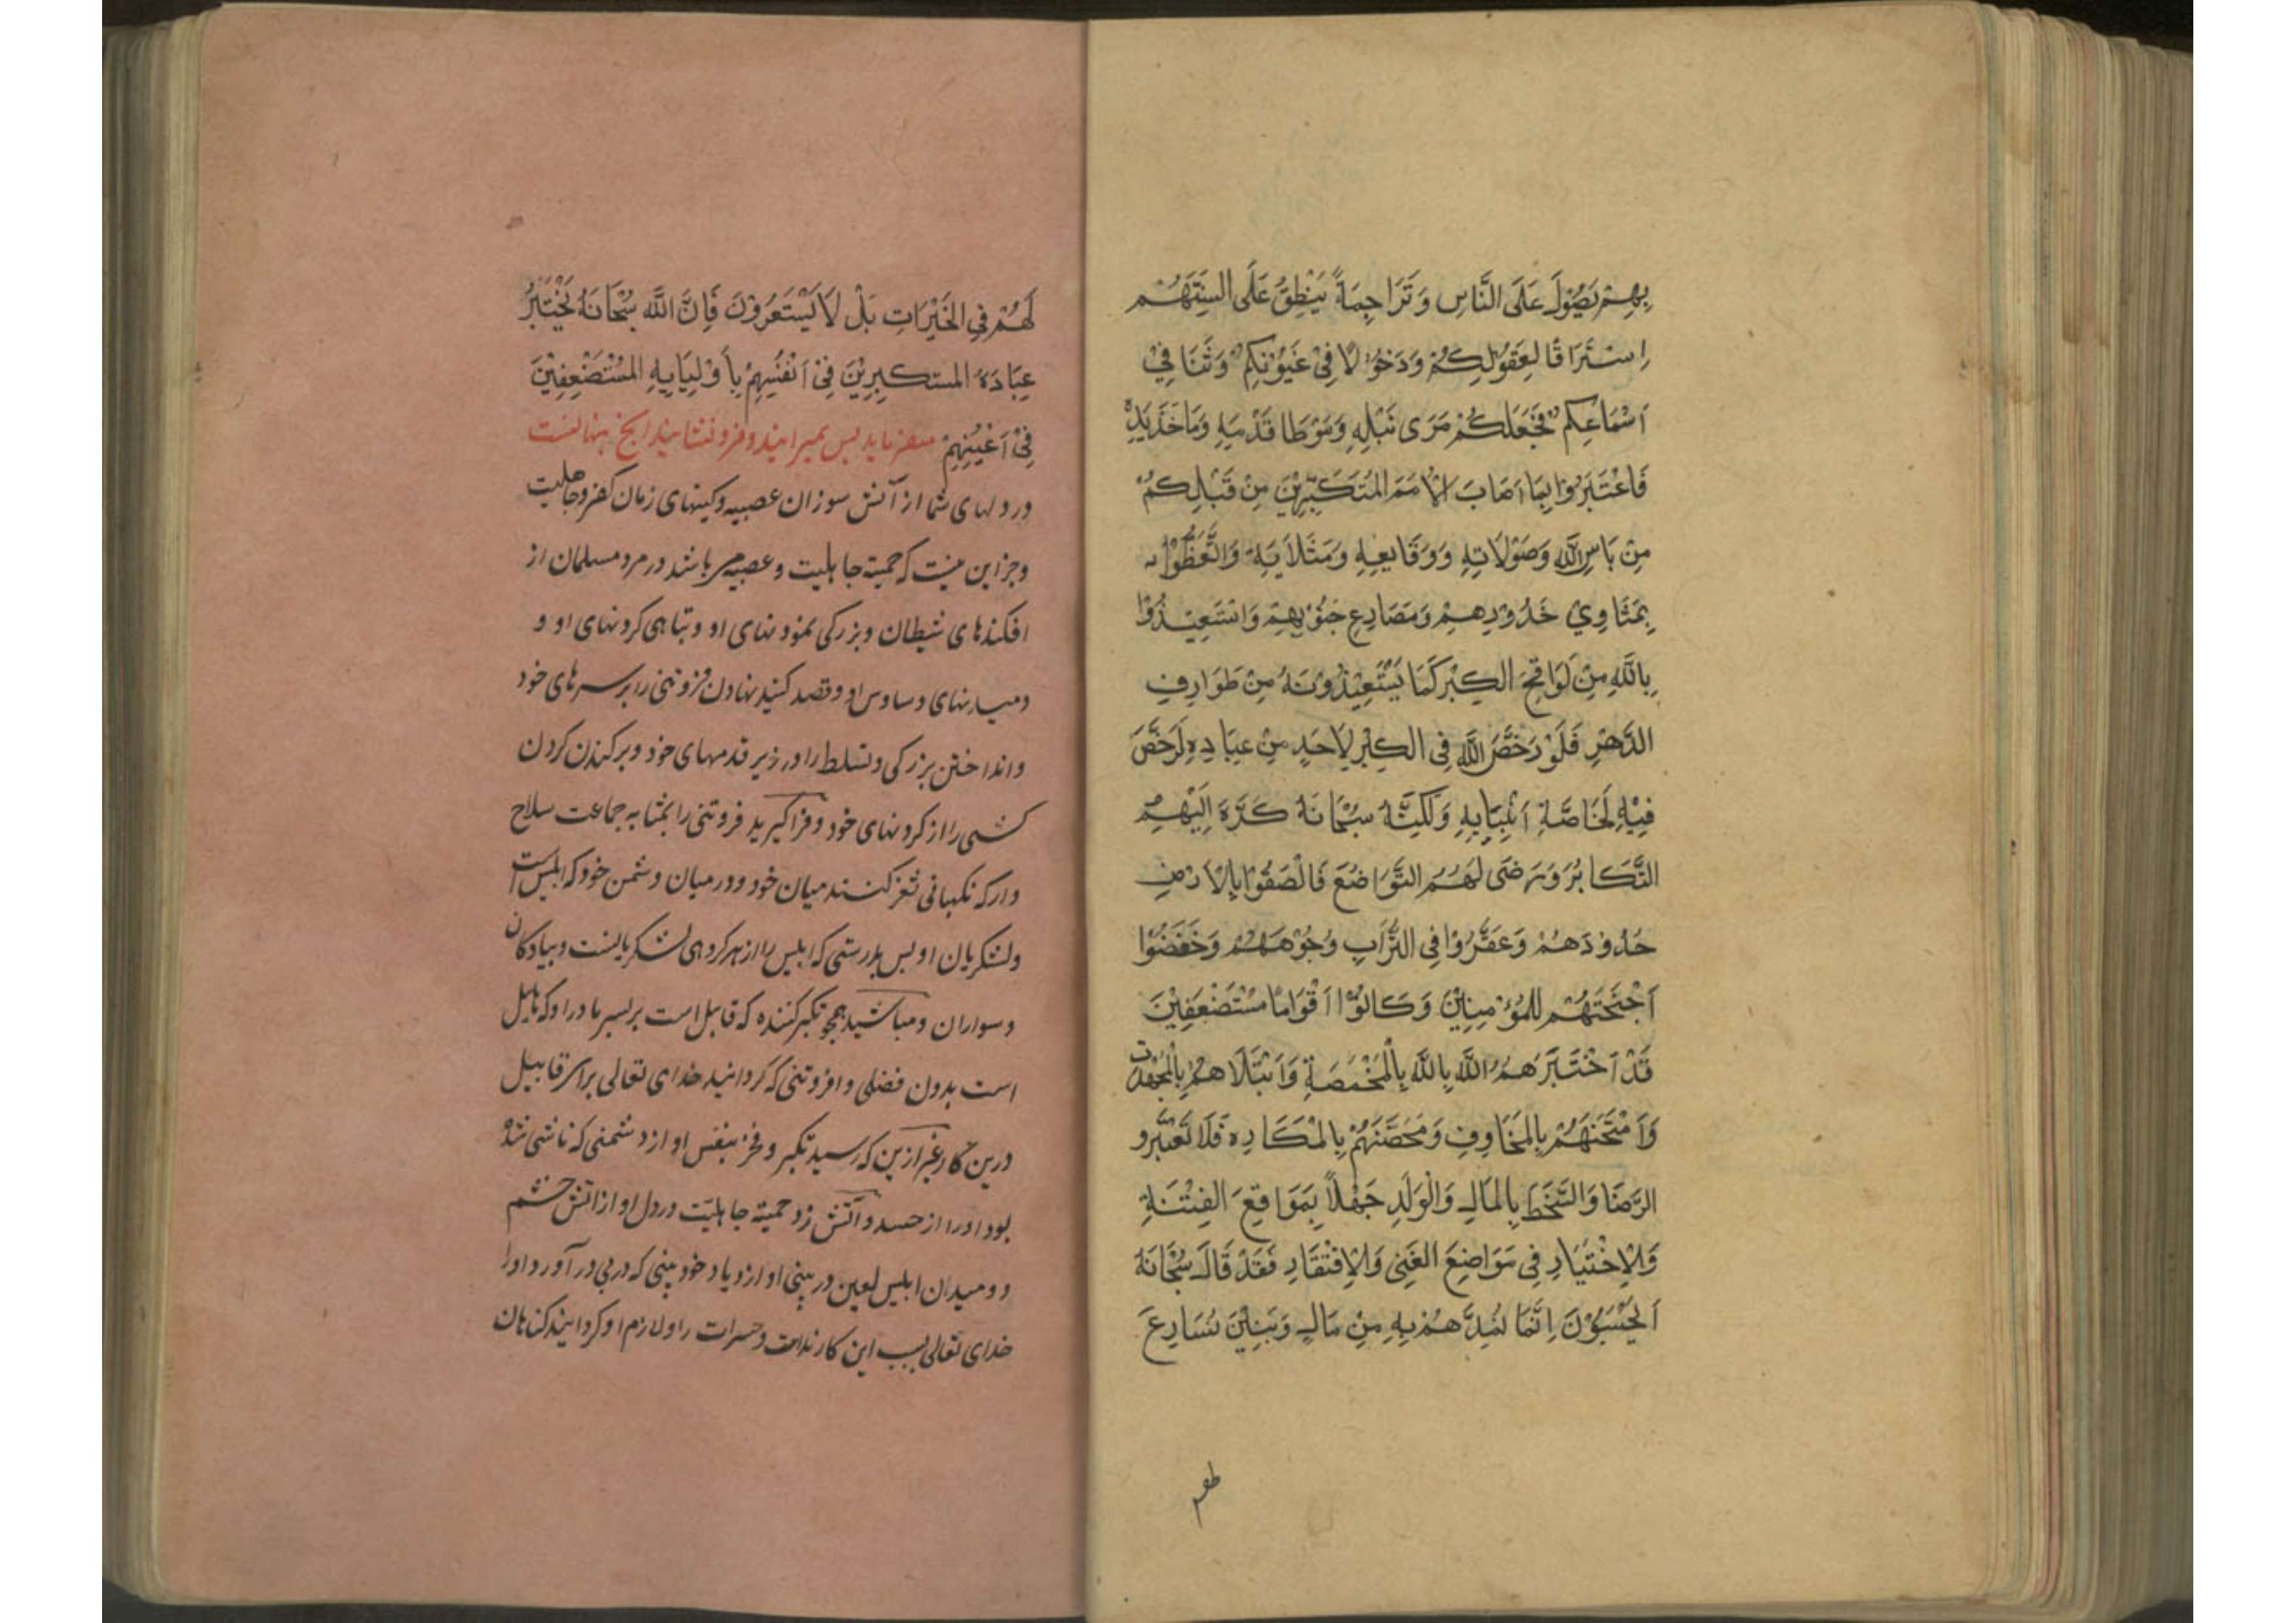 بِهِمْ يَصُوْلَ عَلَى النَّاسِ وَ تَرَاجِمَةً يَنْطِقُ عَلَى اَلسِنَتِهُمْ
اِسْتَرَاقًا لِعُقُوْلِكُمْ وَدَخُوْلًا فِيْ عُيُوْنِكُمْ وَنَثَنَا فِيْ
اَسْمَاعِكُمْ فَجَعَلَكُمْ مَرَى نَبْلِهِ وَمَوْطَا قَدْمِيَهِ وَمَاخَذَيَدِهِ
فَاعْتَبِرُوْا بِمَا اَصَابَ الْاُمَمَ المُتَكَبِّرِيْنَ مِنْ قَبْلِكُمْ
مِنْ بَاسِ اللّٰهِ وَصَوْلَاتِهِ وَوَقَايِعِهِ وَمَثَلَاَيَهِ وَاتَّعَظُوْا
بِمَثَاوِي خَدُوْدِهِمْ وَمَصَادِعِ جَنُوْبِهِمْ وَاسْتَعِيْذُوْا
بِاللّٰهِ مِنْ لَوَاقِحَ الكِبْرِ كَمَا يَسْتَعِيْذُوْنَهُ مِنْ طَوَارِفِ
الدَّهْرِ فَلَوْ رَخَّصَ اللّٰهُ فِى الكِبْرِ لِاَحَدٍ مِنْ عِبَادِهِ لَرَخَّصَ
فِيْهِ لِخَاصَّةِ اَنْبِيَايِهِ وَلَكِنَّهُ سُبْحَانَهُ كَرَّهَ اِلَيْهِمْ
التَّكَابُرَ وَرَضَى لَهُمُ التَّوَاضُعَ فَالْصَقُوْا بِالْاَرْضِ
خَدُوْدَهُمْ وَعَفَّرُوْا فِى التُّرَابِ وُجُوْهَهُمْ وَخَفَضُوْا
اَجْنِحَتَهُمْ لِلْمُؤْمِنِيْنَ وَكَانُوْا اَقْوَامًا مُسْتَضْعَفِيْنَ
قَدْ اَخْتَبَرَهُمُ اللّٰهُ بِاللّٰهِ بِالْمَخْمَصَةِ وَابْتَلَاهُمْ بِالْمَجْهَدَت
وَاَمْتَحَنَهُمْ بِالمَخَاوِفِ وَمَحَصَّنَهُمْ بِالمَكَادِهِ فَلَا تَعْتَبِرو
الرَّضَا وَالسَّخَطَ بِالمَالِ وَالْوَلَدِ جَهْلًا بِمَوَاقِعَ الفِتْنَةِ
وَالِاخْتِيَادِ فِى مَوَاضِعَ الغَنِى وَالِافْتِقَادِ فَقَدْ قَالَ سُبْحَانَهُ
اَيَحْسَبُوْنَ اِنَّمَا نُمِدَّهُمْ بِهِ مِنْ مَالِ وَبَنِيْنَ نُسَارِعَ
طهم
لَهُمْ فِى الخَيْرَاتِ بَلْ لَا يَشْتَعَرُوْنَ فَاِنَّ اللّٰهَ سُبْحَانَهُ يَخْتَبِرُ
عِبَادَهُ المستكبِرِيْنَ فِيْ اَنْفُسِهِمْ بِاَوْلِيَايِهِ المُسْتَضْعِفِيْنَ
فِيْ اَعْيُنِهِمْ ميفرمايد پس بميرانيد و فرو نشانيد آنچ پنهانست
در دلهاى شما از آتش سوزان عصبيه و كينهاى زمان كفر و جاهليت
و جز اين نيست كه حميّته جاهليت و عصبيه ميباشد در مرد مسلمان از
افكندهاى شيطان و بزركى نمودنهاى او و تباهى كردنهاى او و
دميدنهاى و ساوس او و قصد كنيد نهادن فروتنى را بر سرهاى خود
و انداختن بزركى و تسلط را در زير قدمهاى خود و بركندن كردن
كشى را از كردنهاى خود و فرا كيريد فروتنى را بمثابه جماعت سلاح
دار كه نكهبانى ثغر كنند ميان خود و در ميان دشمن خود كه ابليس است
و لشكريان او پس بدرستى كه ابليس را از هر كروهى لشكرياينست و پيادكان
و سواران و مباشيد همچو تكبر كننده كه قابيل است بر پسر مادر او كه هابيل
است بدون فضلى و افزوتنى كه كردانيد خداى تعالى براى قابيل
درين كار غير ازين كه رسيد تكبر و فخر بنفس او از دشمنى كه ناشى شده
بود او را از حسد و آتش زد حميّته جاهليّت در دل او از اتش خشم
و دميدن ابليس لعين در بينى او از ياد خودبينى كه در پى در آورد او را
خداى تعالى بسبب اين كار ندامت و حسرات را و لازم او كردانيد كناهان